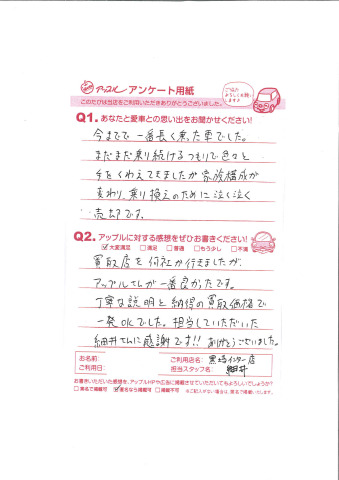 アップル アンケート用紙
ご協力よろしくお願いします♪
このたびは当店をご利用いただきありがとうございました。
Q1. あなたと愛車との思い出をお聞かせください!
今までで一番長く乗た車でした。
まだまだ乗り続けるつもりで色々と
手をくわえてきましたが家族構成が
変わり、乗り換えのために泣く泣く
売却です。
Q2. アップルに対する感想をぜひお書きください!
☑大変満足 □満足 □普通 □もう少し □不満
買取店を何社か行きましたが、
アップルさんが一番良かったです。
丁寧な説明と納得の買取価格で
一発OKでした。担当していただいた
細井さんに感謝です!! ありがとうございました。
お名前:
ご利用日:
ご利用店名: 黒埼インター店
担当スタッフ名: 細井
お書きいただいた感想を、アップルHPや広告に掲載させていただいてもよろしいでしょうか?
□実名で掲載可 ☑匿名なら掲載可 □掲載不可 ※ご記入がない場合は、匿名で掲載いたします。